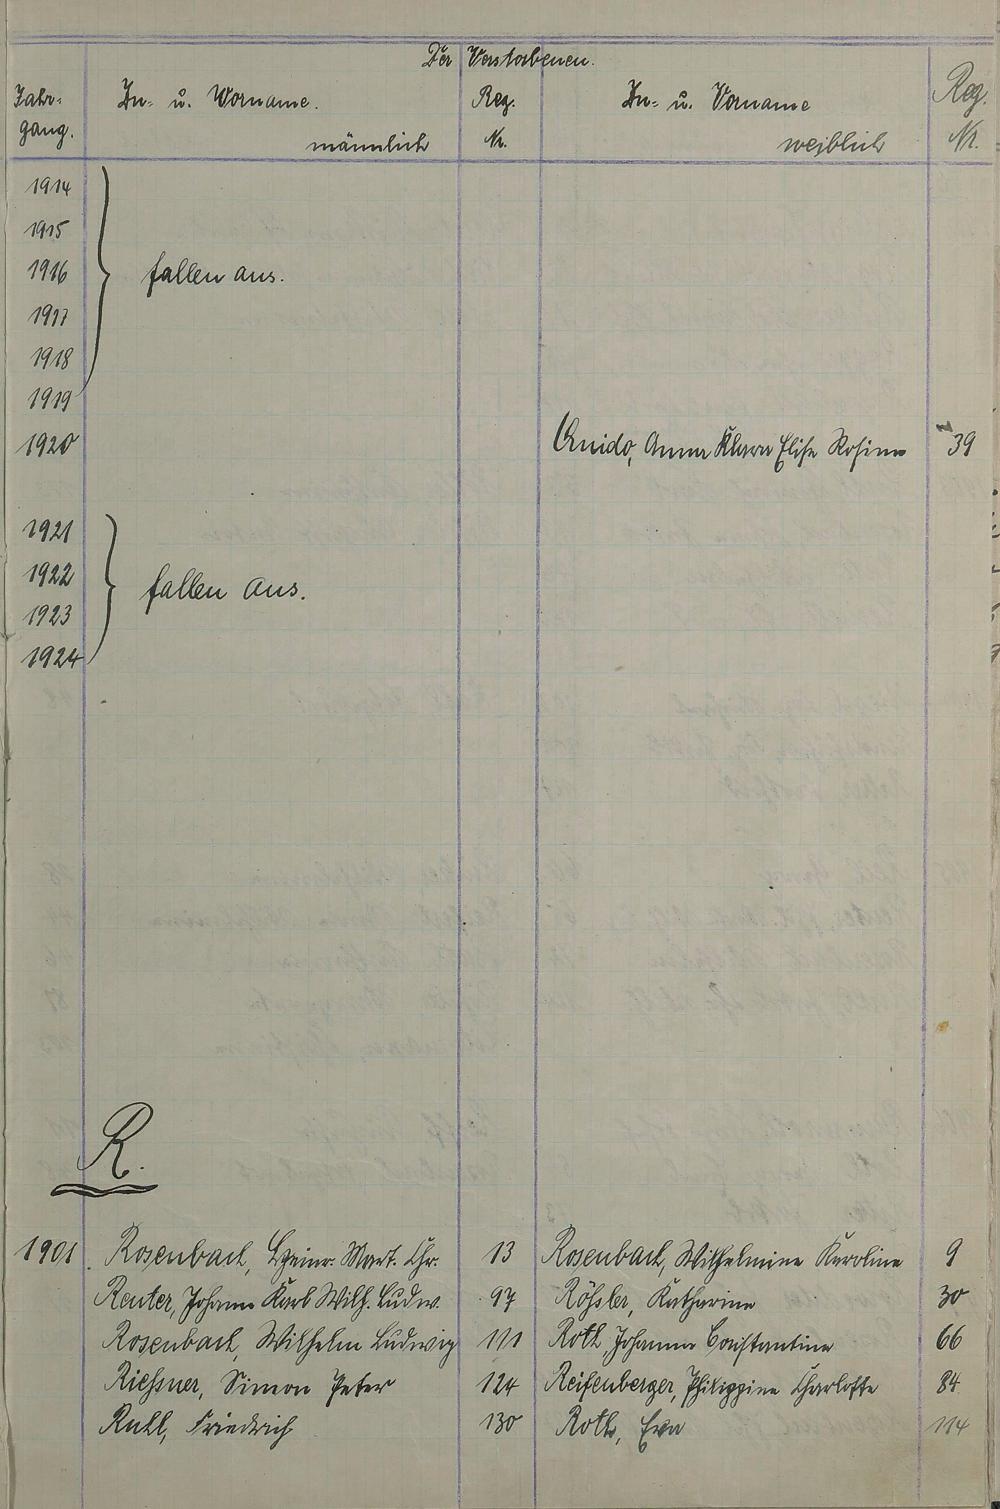 Der Verstorbenen.
Jahr- Zu- u. Vorname. Reg. Zu- u. Vorname Reg.
gang. männlich Nr. weiblich Nr.
1914
1915
1916 fallen aus.
1917
1918
1919
1920 Quido, Anna Klara Elise Rosina 39
1921
1922 fallen aus.
1923
1924
R.
1901. Rosenbach, Heinr. Mart. Chr. 13 Rosenbach, Wilhelmine Karoline 9
Reuter, Johann Karl Wilh. Ludw. 97 Rößler, Katharina 30
Rosenbach, Wilhelm Ludwig 111 Roth, Johanna Constantine 66
Riessner, Simon Peter 124 Reifenberger, Philippine Charlotte 84
Ruhl, Friedrich 130 Roth, Eva 114